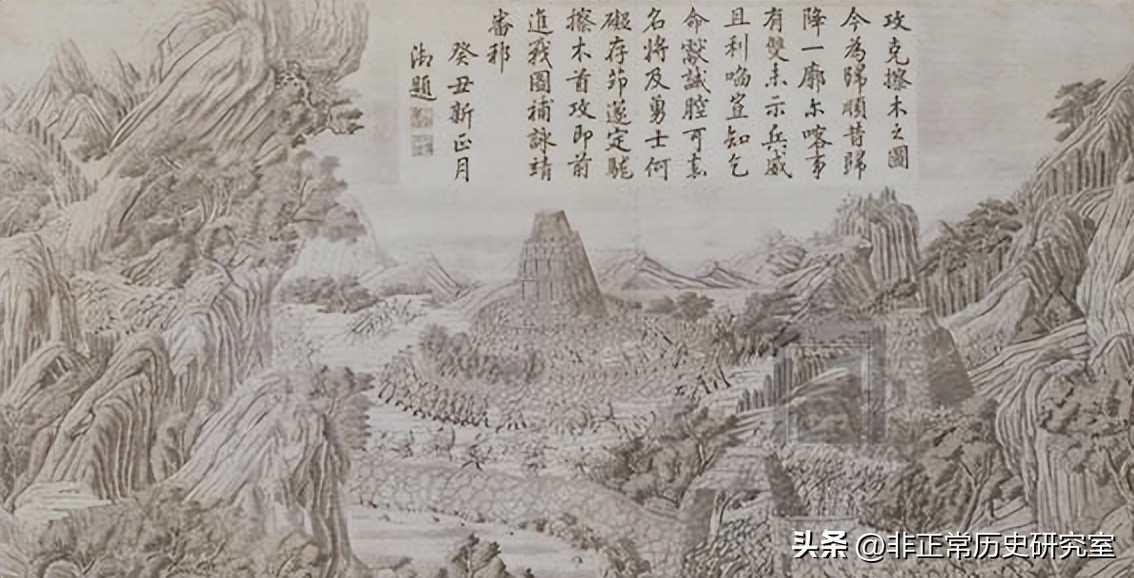 攻克擦木之圖
今為歸順昔歸
降一廓尔喀事
有雙未示兵威
且利啗知乞
命獻誠腔可
名將及勇士何
礙存茆遂定駹
擦木首攻即前
進戰圖補詠靖
蕃邦
癸丑新正月
御題
头条 @非正常历史研究室